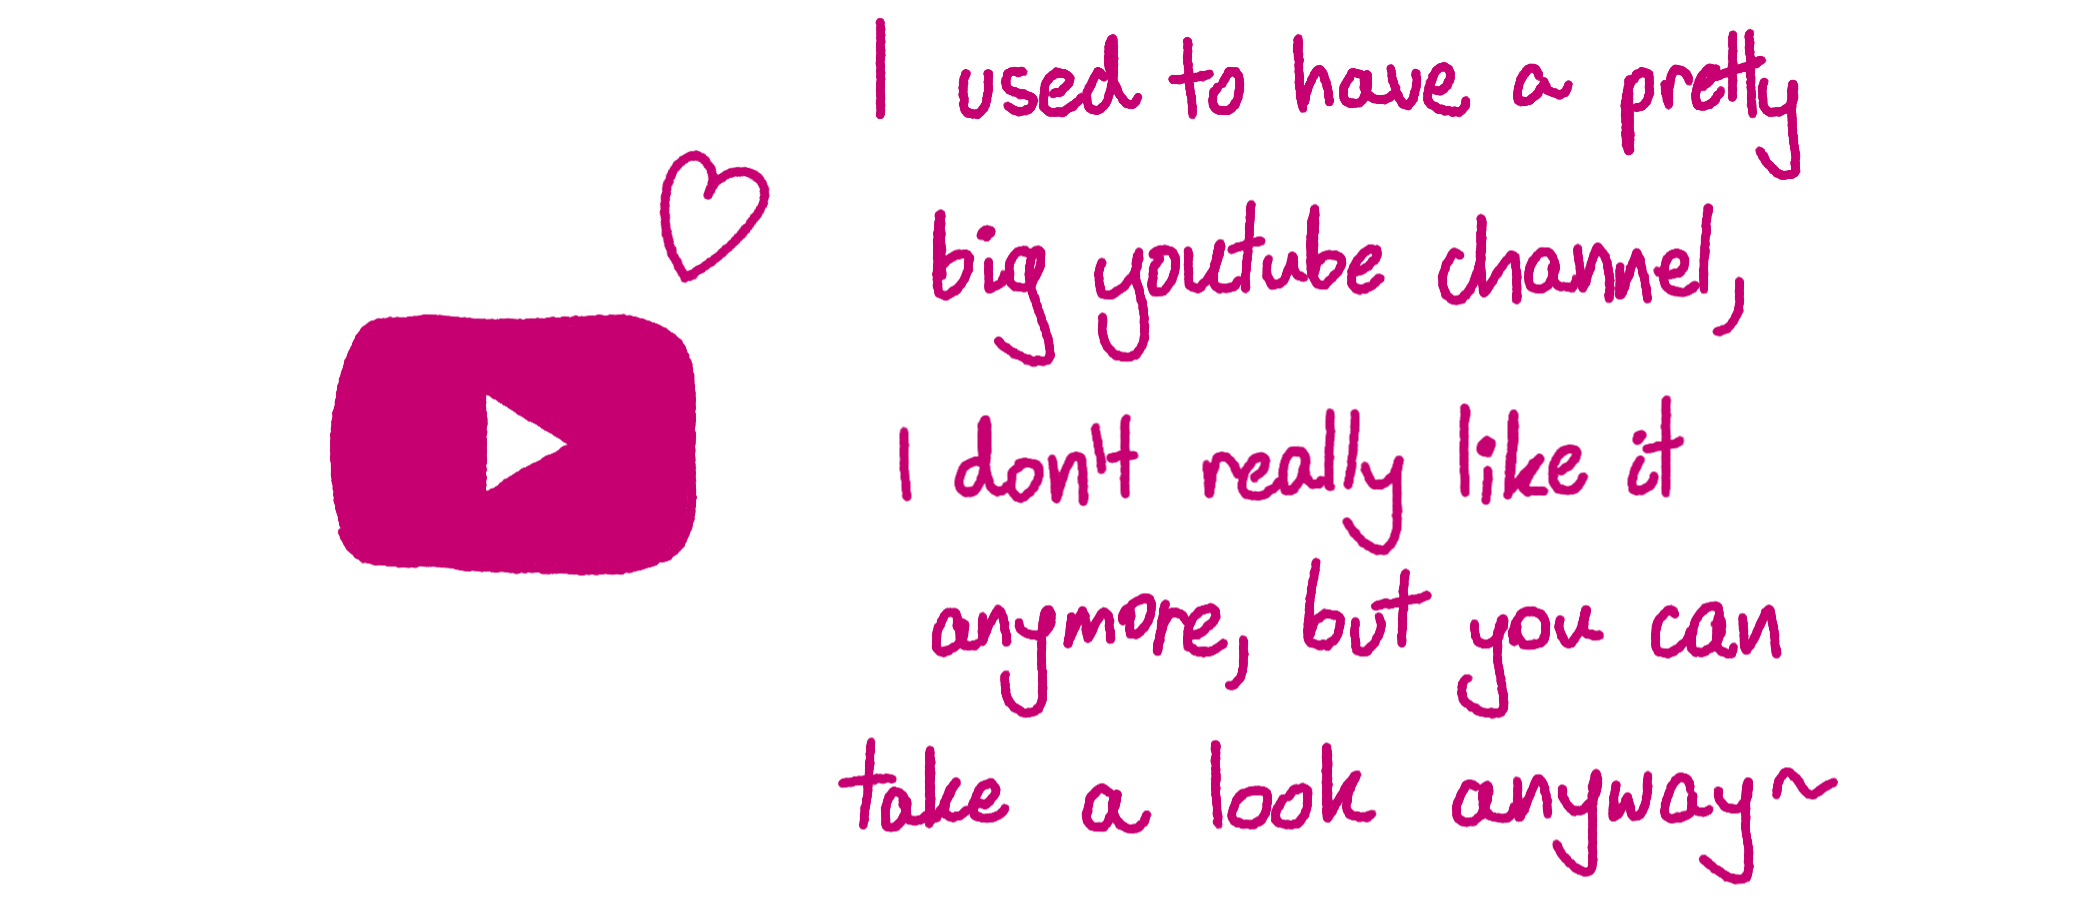 I used to have a pretty
big youtube channel,
I don't really like it
anymore, but you can
take a look anyway~